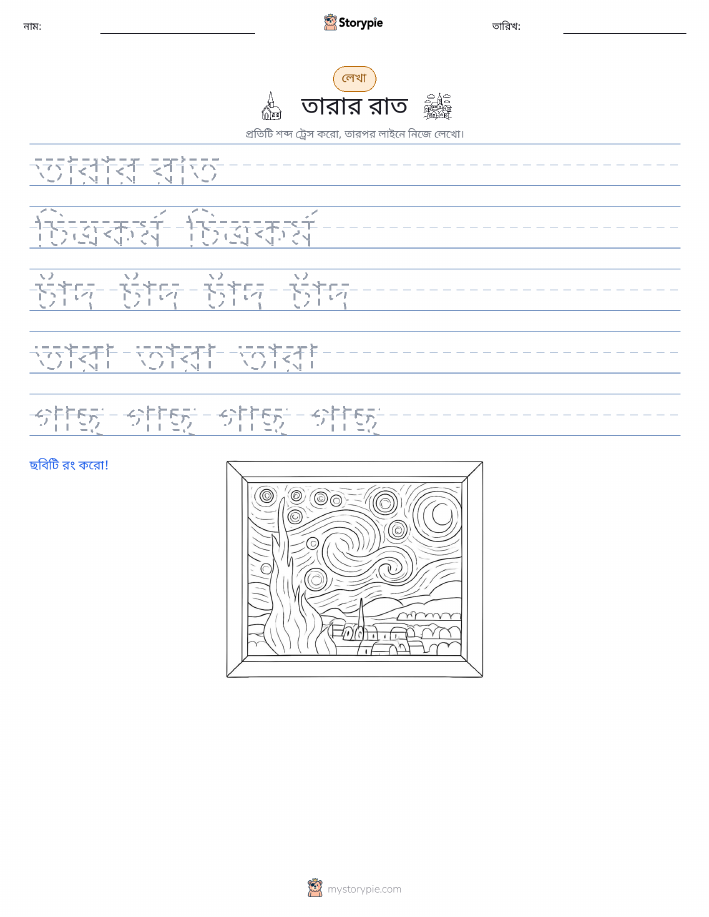 নাম:
Storypie
তারিখ:
লেখা
তারার রাত
প্রতিটি শব্দ ট্রেস করো, তারপর লাইনে নিজে লেখো।
তারার রাত
চিত্রকর্ম চিত্রকর্ম
চাঁদ চাঁদ চাঁদ চাঁদ
তারা তারা তারা
গাছ গাছ গাছ গাছ
ছবিটি রং করো!
mystorypie.com